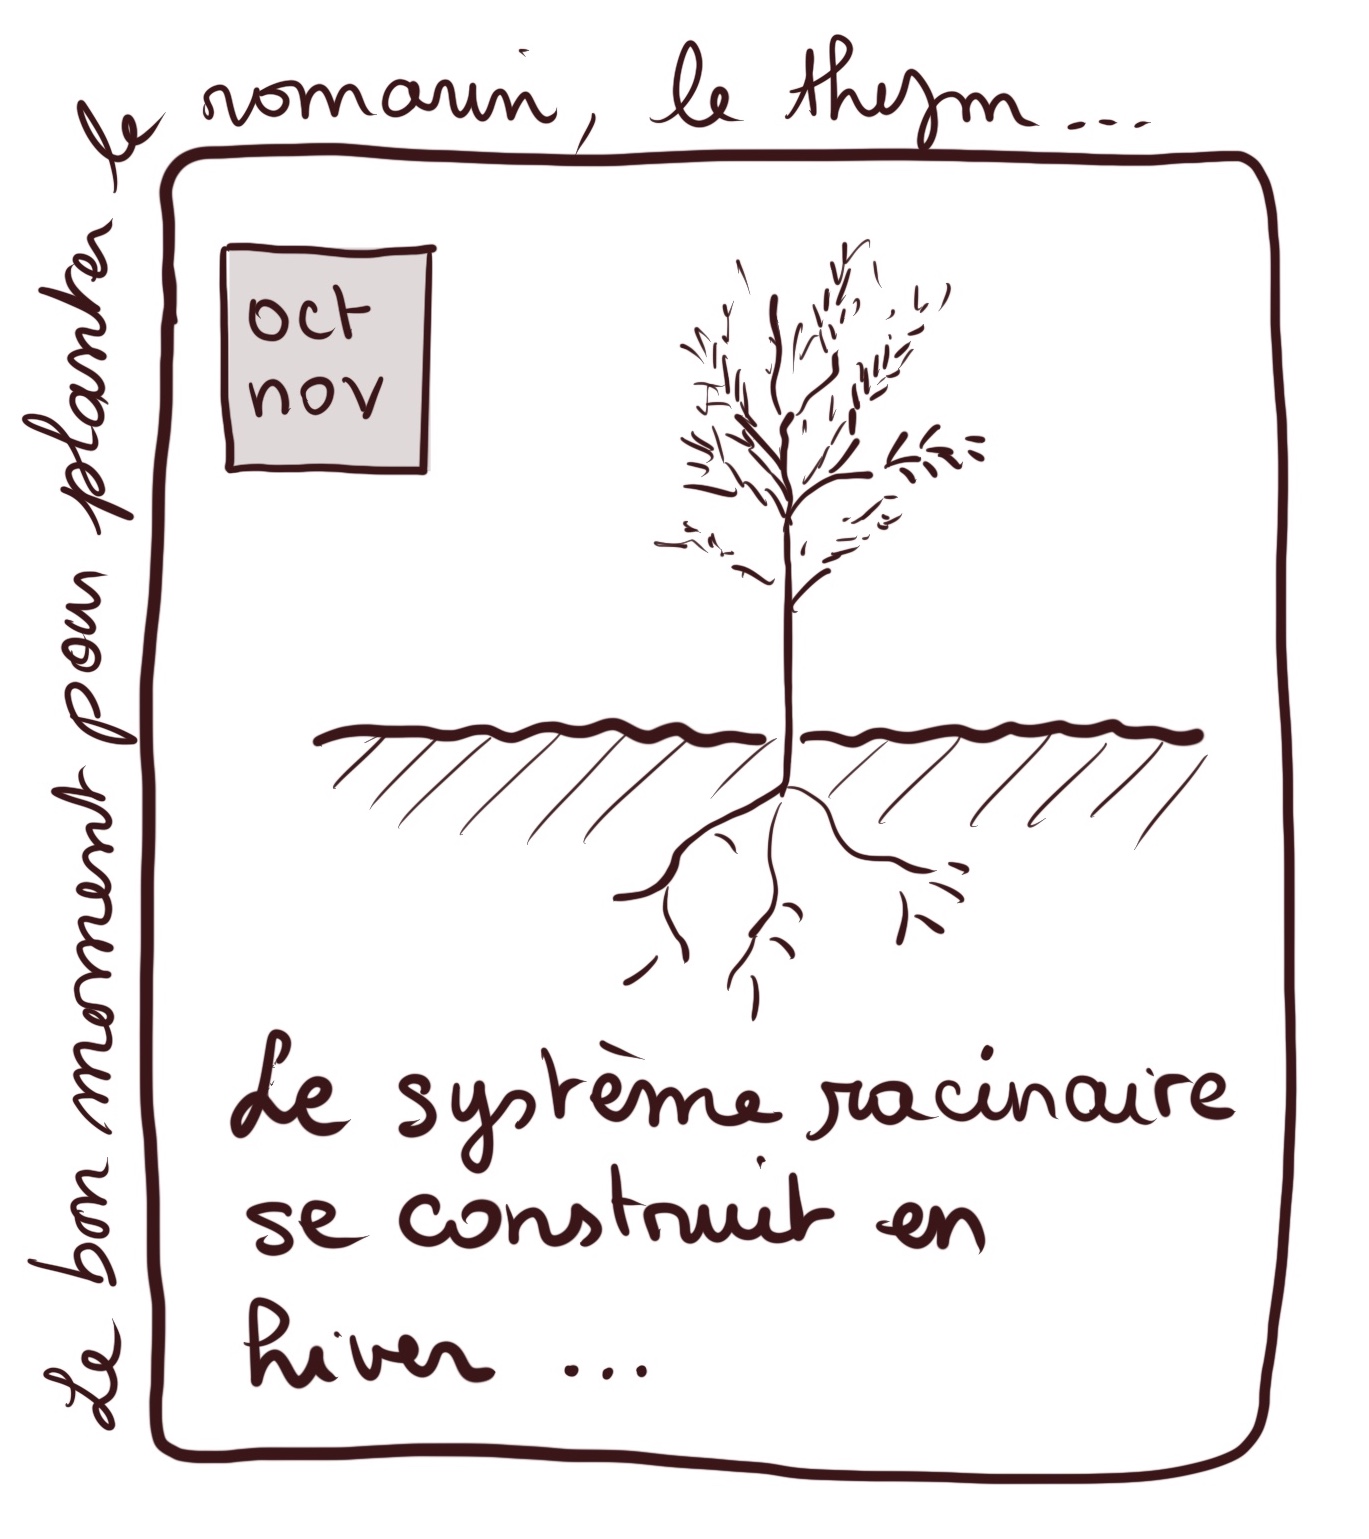 Le bon moment pour planter le
romarin, le thym...
oct
nov
Le système racinaire
se construit en
hiver ...